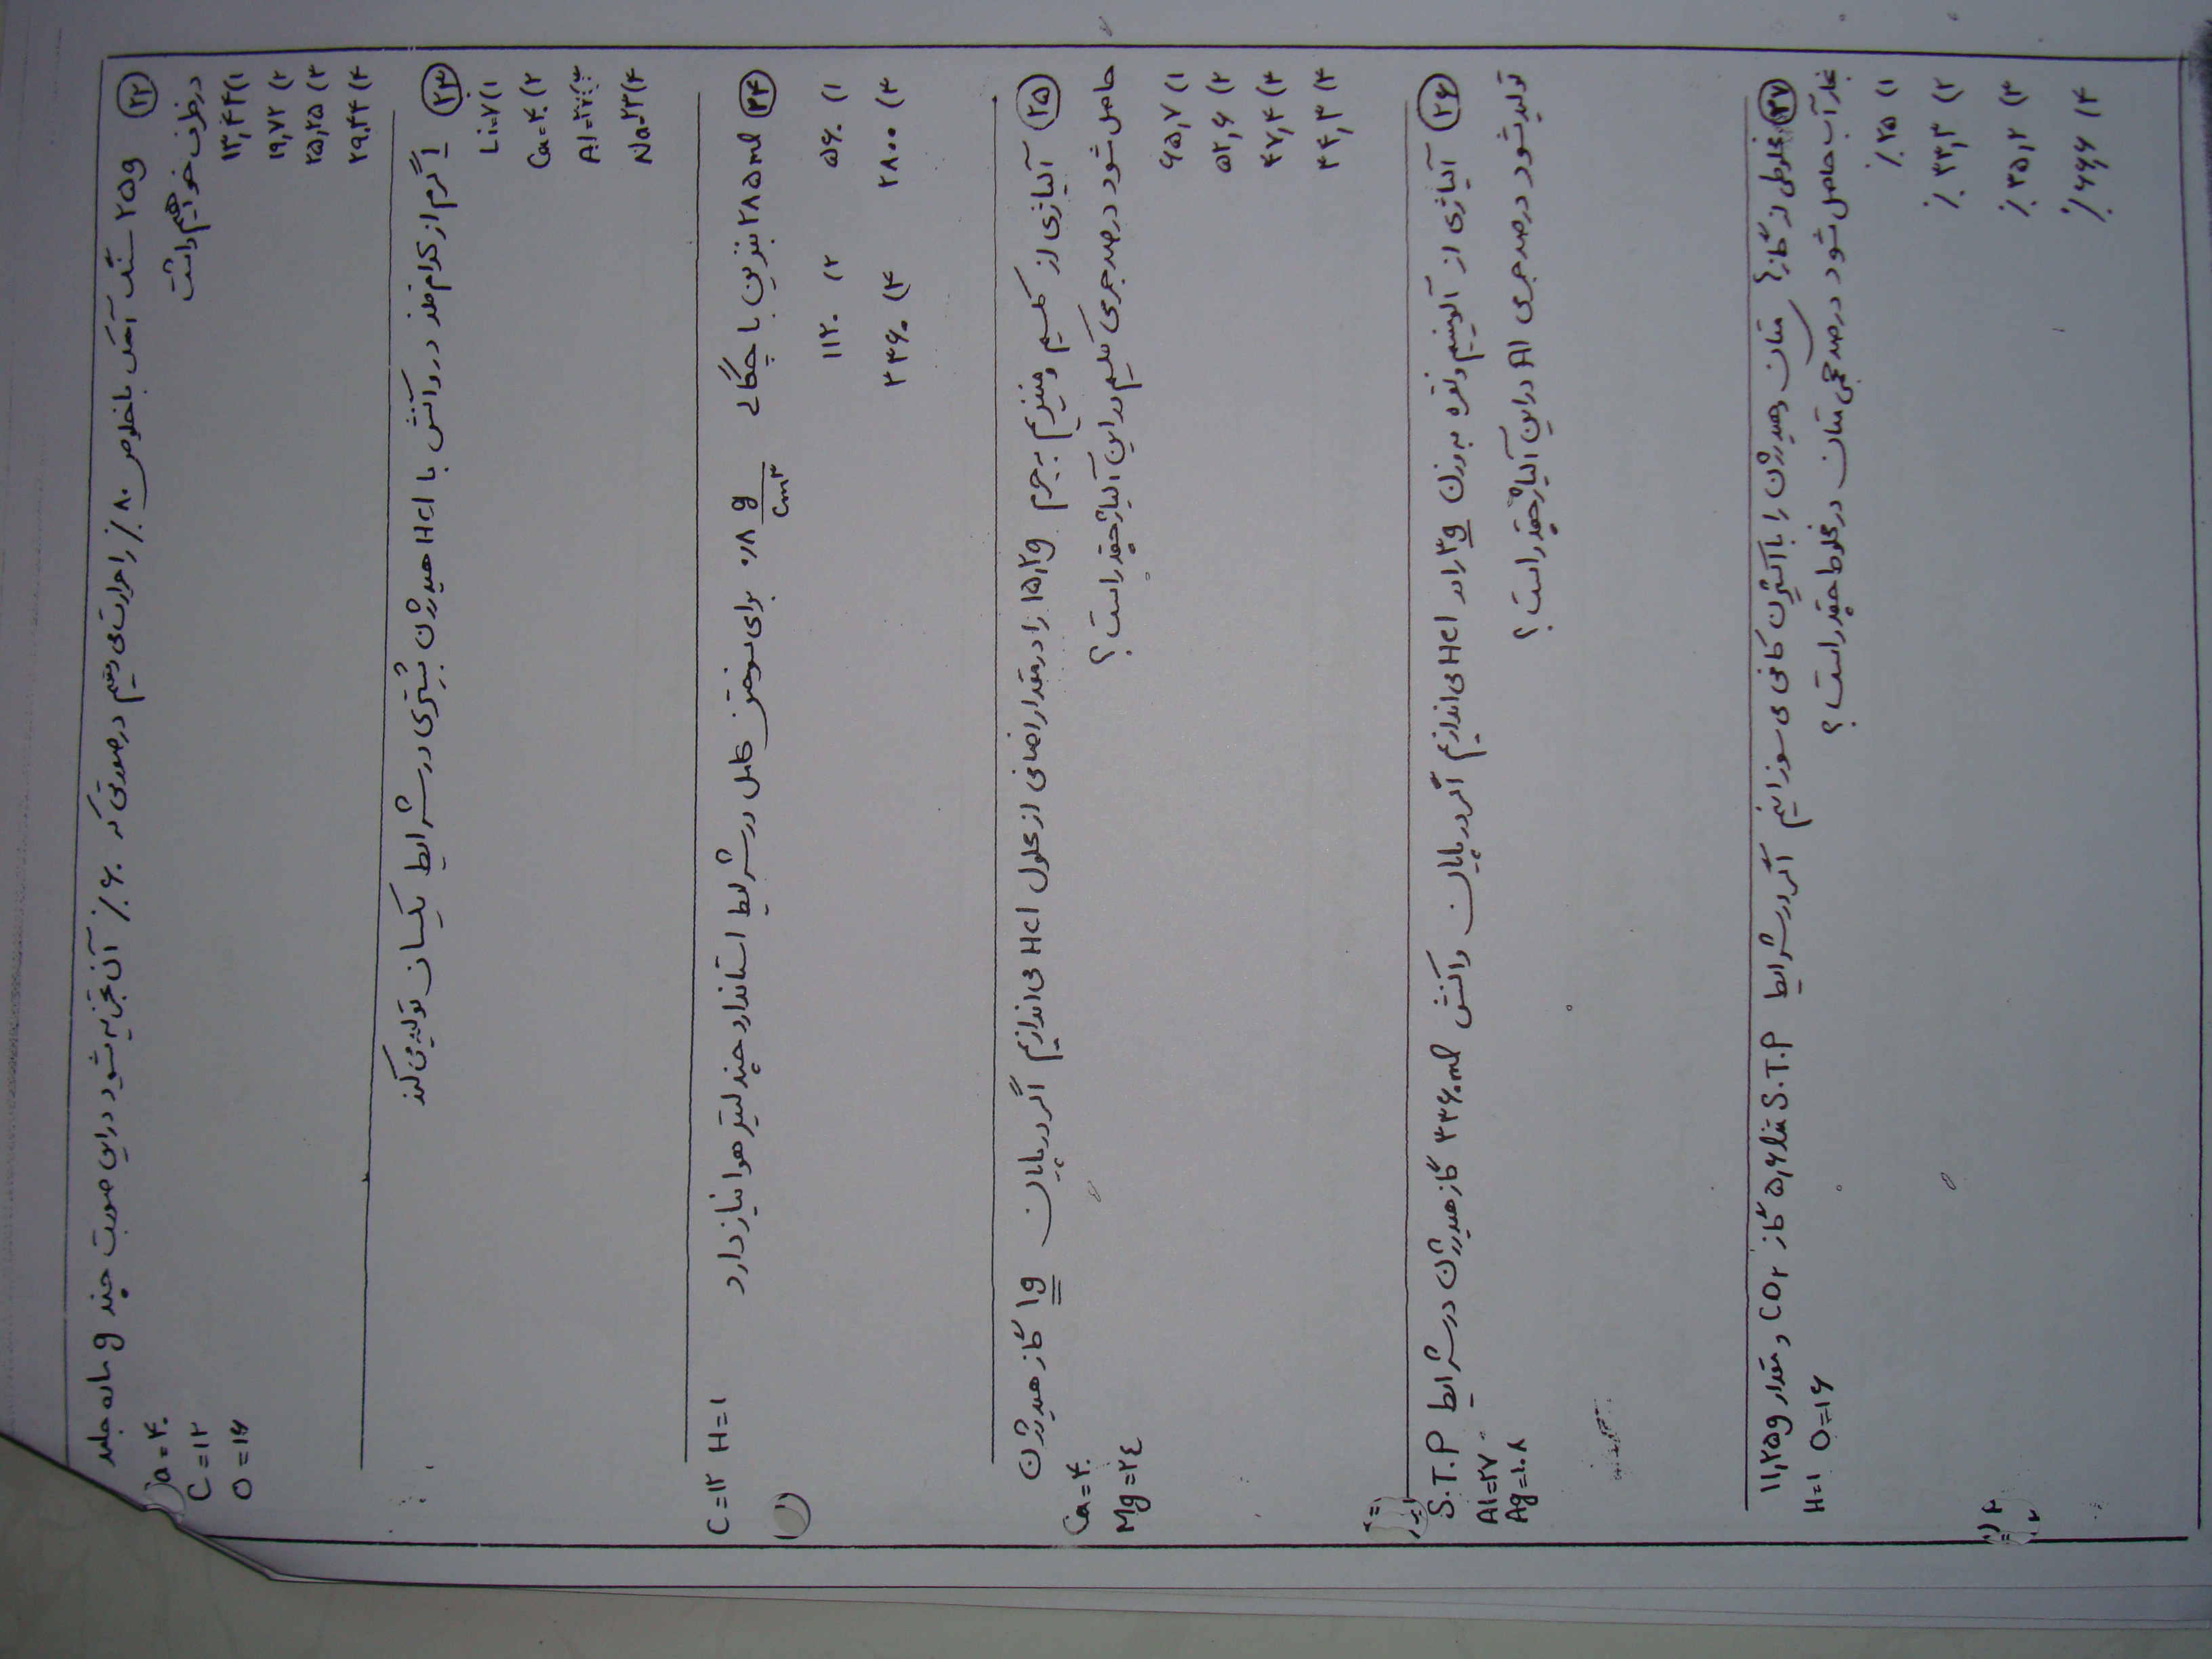 ۲۲ ۲۵g سنگ آهک با خلوص ۸۰٪ را حرارت می دهیم در صورتی که ۶۰٪ آن تجزیه شود در این صورت چند g ماده جامد
در ظرف خواهیم داشت
Ca=۴۰
C=۱۲
O=۱۶
۱) ۱۳,۴۴
۲) ۱۹,۷۲
۳) ۲۵,۲۵
۴) ۲۹,۴۴
۲۳ ۱ گرم از کدام فلز در واکنش با HCl هیدروژن بیشتری در شرایط یکسان تولید می کند
۱) Li=۷
۲) Ca=۴۰
۳) Al=۲۷
۴) Na=۲۳
۲۴ ۲۸۵ml بنزین با چگالی ۰,۸ g/cm۳ برای سوختن کامل در شرایط استاندارد چند لیتر هوا نیاز دارد C=۱۲ H=۱
۱) ۵۶۰ ۲) ۱۱۲۰
۳) ۲۸۰۰ ۴) ۳۳۶۰
۲۵ آلیاژی از کلسیم و منیزیم به جرم ۱۵,۲g را در مقدار اضافی از محلول HCl می اندازیم اگر در پایان ۱g گاز هیدروژن
حاصل شود درصد جرمی کلسیم در این آلیاژ چقدر است؟
Ca=۴۰
Mg=۲٤
۱) ۶۵,۷
۲) ۵۲,۶
۳) ۴۷,۴
۴) ۳۴,۳
۲۶ آلیاژی از آلومینیم و نقره به وزن ۳g را در HCl می اندازیم اگر در پایان واکنش ۳۳۶۰ml گاز هیدروژن در شرایط S.T.P
تولید شود درصد جرمی Al در این آلیاژ چقدر است؟
Al=۲۷
Ag=۱۰۸
۲۷ مخلوطی از گازهای متان و هیدروژن را با اکسیژن کافی می سوزانیم اگر در شرایط S.T.P مقدار ۵,۶ گاز CO۲ و مقدار ۱۱,۲۵g
بخار آب حاصل شود درصد حجمی متان در مخلوط چقدر است؟
H=۱ O=۱۶
۱) ۲۵٪
۲) ۳۳,۳٪
۳) ۳۵,۲٪
۴) ۶۶,۶٪